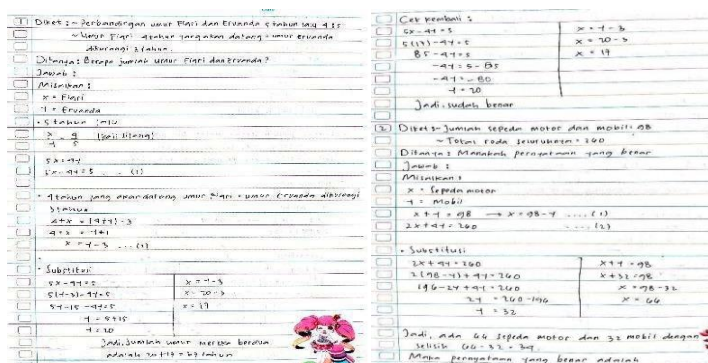 1 Diket : ~ Perbandingan umur Fiari dan Ervanda 5 tahun lalu 4:5
~ Umur Fiari 4 tahun yang akan datang = umur ervanda
dikurangi 3 tahun.
Ditanya : Berapa jumlah umur Fiari dan Ervanda?
Jawab :
Misalkan :
x = Fiari
y = Ervanda
• 5 tahun lalu
x/y = 4/5 (kali silang)
5x = 4y
5x - 4y = 5 ... (1)
• 4 tahun yang akan datang umur Fiari = umur Ervanda dikurangi
3 tahun
4+x = (4+y) - 3
4+x = y+1
x = y-3 ... (2)
• Substitusi
5x - 4y = 5
5(y-3) - 4y = 5
5y - 15 - 4y = 5
y = 5+15
y = 20
x = y-3
x = 20-3
x = 17
Jadi, Jumlah umur mereka berdua
adalah 20+17 = 37 tahun
Cek kembali :
5x - 4y = 5
5(17) - 4y = 5
85 - 4y = 5
-4y = 5 - 85
-4y = -80
y = 20
x = y - 3
x = 20 - 3
x = 17
Jadi, sudah benar
2 Diket : ~ Jumlah sepeda motor dan mobil : 98
~ Total roda seluruhnya = 260
Ditanya : Manakah pernyataan yang benar
Jawab :
Misalkan :
x = Sepeda motor
y = Mobil
x + y = 98 → x = 98 - y .... (1)
2x + 4y = 260 .... (2)
• Substitusi
2x + 4y = 260
2(98-y) + 4y = 260
196 - 2y + 4y = 260
2y = 260 - 196
y = 32
x + y = 98
x + 32 = 98
x = 98 - 32
x = 66
Jadi, ada 66 sepeda motor dan 32 mobil dengan
selisih 66 - 32 = 34.
Maka pernyataan yang benar adalah